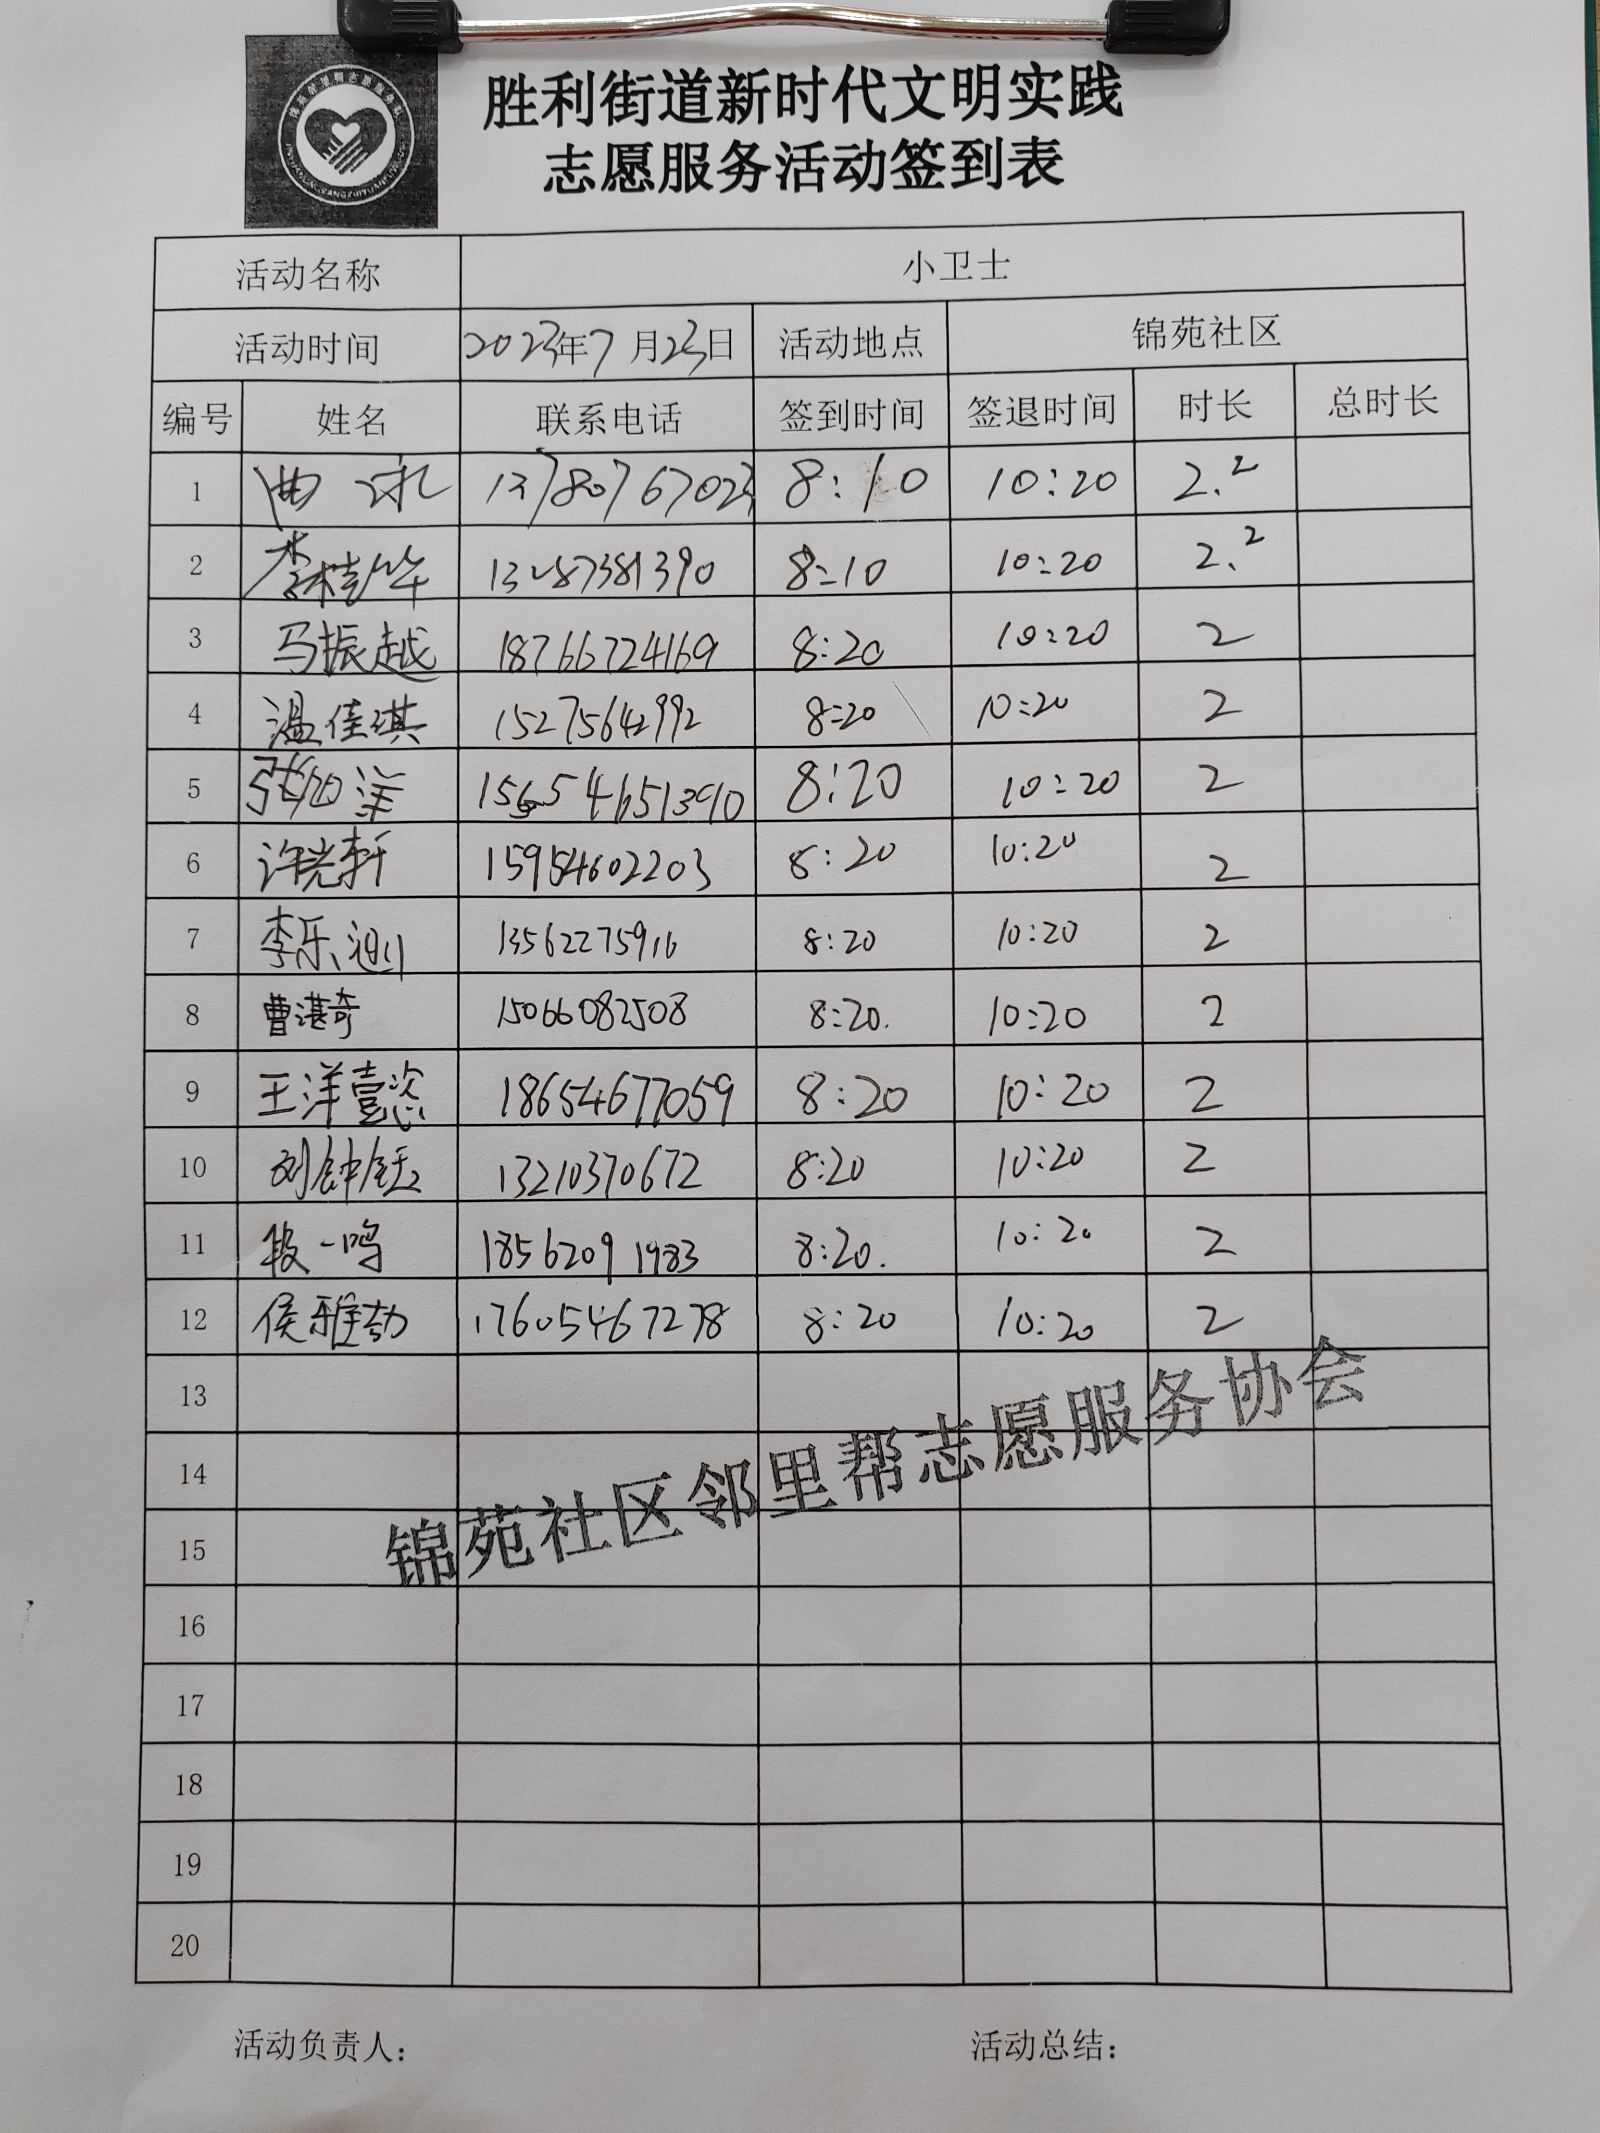 胜利街道新时代文明实践
志愿服务活动签到表
活动名称 小卫士
活动时间 2023年7月23日 活动地点 锦苑社区
编号 姓名 联系电话 签到时间 签退时间 时长 总时长
1 曲 13780767023 8:10 10:20 2.2
2 李桂华 13287381390 8:10 10:20 2.2
3 马振越 18766724169 8:20 10:20 2
4 温佳琪 15275642992 8:20 10:20 2
5 8:20 10:20 2
6 许光轩 15954602203 8:20 10:20 2
7 李乐 13562275916 8:20 10:20 2
8 曹湛奇 15066082508 8:20. 10:20 2
9 王洋壹恣 18654677059 8:20 10:20 2
10 刘钟钰 13210370672 8:20 10:20 2
11 段一鸣 18562091983 8:20. 10:20 2
12 侯雅劼 17605467278 8:20 10:20 2
13
14
15
16
17
18
19
20
锦苑社区邻里帮志愿服务协会
活动负责人: 活动总结: